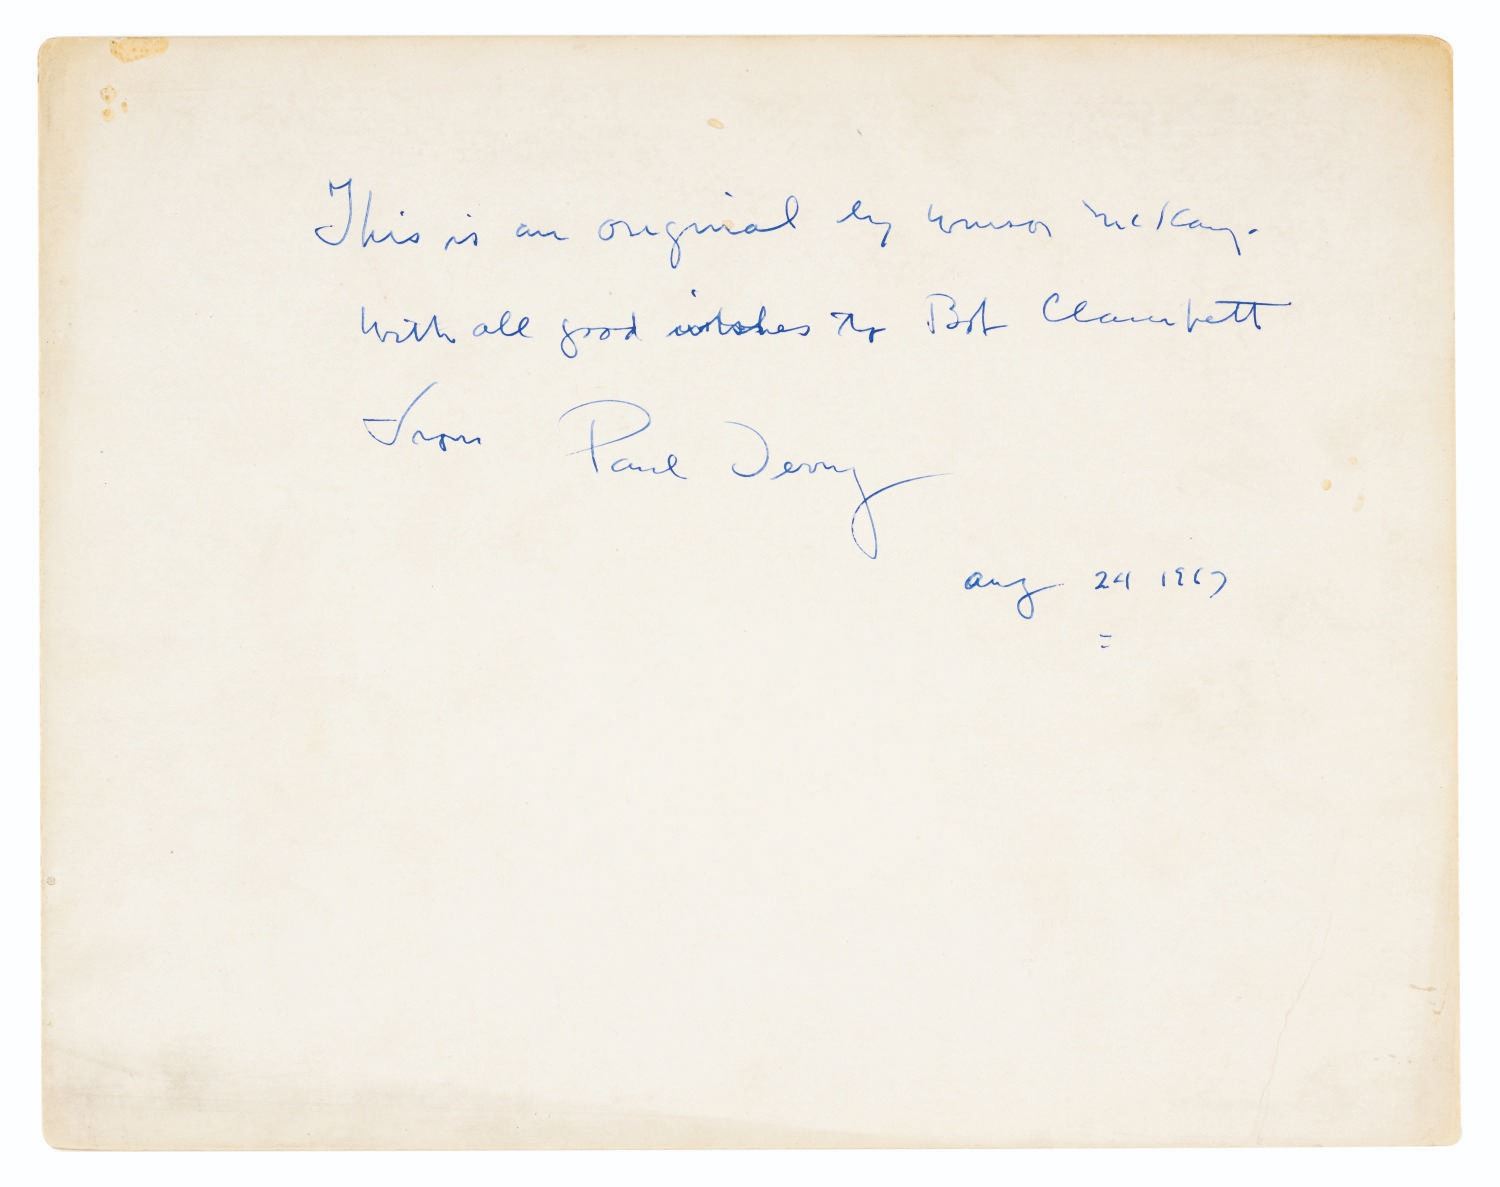 This is an original by Winsor McKay.
With all good wishes to Bob Clampett
From Paul Derry
Aug 24 1967
=